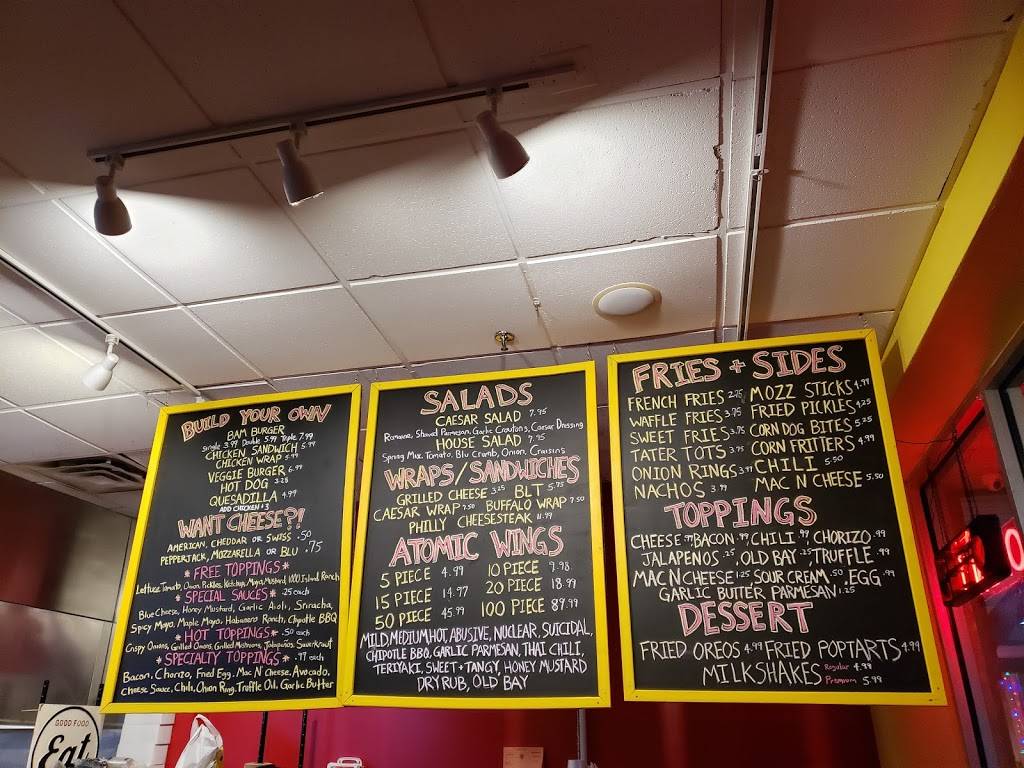 BUILD YOUR OWN
BAM BURGER
Single 3.99 Double 5.99 Triple 7.99
CHICKEN SANDWICH 5.99
CHICKEN WRAP 5.99
VEGGIE BURGER 6.99
HOT DOG 3.25
QUESADILLA 4.99
ADD CHICKEN $3
WANT CHEESE?!
AMERICAN, CHEDDAR OR SWISS .50
PEPPERJACK, MOZZARELLA OR BLU .75
* FREE TOPPINGS *
Lettuce, Tomato, Onion, Pickles, Ketchup, Mayo, Mustard, 1000 Island, Ranch
* SPECIAL SAUCES * .25 each
Blue Cheese, Honey Mustard, Garlic Aioli, Sriracha,
Spicy Mayo, Maple Mayo, Habanero Ranch, Chipotle BBQ
* HOT TOPPINGS * .50 each
Crispy Onions, Grilled Onions, Grilled Mushrooms, Jalapeños, Sauerkraut
* SPECIALTY TOPPINGS * .99 each
Bacon, Chorizo, Fried Egg, Mac N Cheese, Avocado,
Cheese Sauce, Chili, Onion Ring, Truffle Oil, Garlic Butter
SALADS
CAESAR SALAD 7.95
Romaine, Shaved Parmesan, Garlic Croutons, Caesar Dressing
HOUSE SALAD 7.95
Spring Mix, Tomato, Blu Crumb, Onion, Craisins
WRAPS/SANDWICHES
GRILLED CHEESE 3.25 BLT 5.75
CAESAR WRAP 7.50 BUFFALO WRAP 7.50
PHILLY CHEESESTEAK 11.99
ATOMIC WINGS
5 PIECE 4.99 10 PIECE 9.98
15 PIECE 14.97 20 PIECE 18.99
50 PIECE 45.99 100 PIECE 89.99
MILD, MEDIUM, HOT, ABUSIVE, NUCLEAR, SUICIDAL,
CHIPOTLE BBQ, GARLIC PARMESAN, THAI CHILI,
TERIYAKI, SWEET + TANGY, HONEY MUSTARD
DRY RUB, OLD BAY
FRIES + SIDES
FRENCH FRIES 2.75 MOZZ STICKS 4.99
WAFFLE FRIES 3.75 FRIED PICKLES 4.25
SWEET FRIES 3.75 CORN DOG BITES 5.25
TATER TOTS 3.75 CORN FRITTERS 4.99
ONION RINGS 3.99 CHILI 5.50
NACHOS 3.99 MAC N CHEESE 5.50
TOPPINGS
CHEESE .99 BACON .99 CHILI .99, CHORIZO .99
JALAPENOS .25, OLD BAY .25, TRUFFLE .99
MAC N CHEESE 1.25 SOUR CREAM .50, EGG .99
GARLIC BUTTER PARMESAN 1.25
DESSERT
FRIED OREOS 4.99 FRIED POPTARTS 4.99
MILKSHAKES Regular 4.99
Premium 5.99
GOOD FOOD
Eat